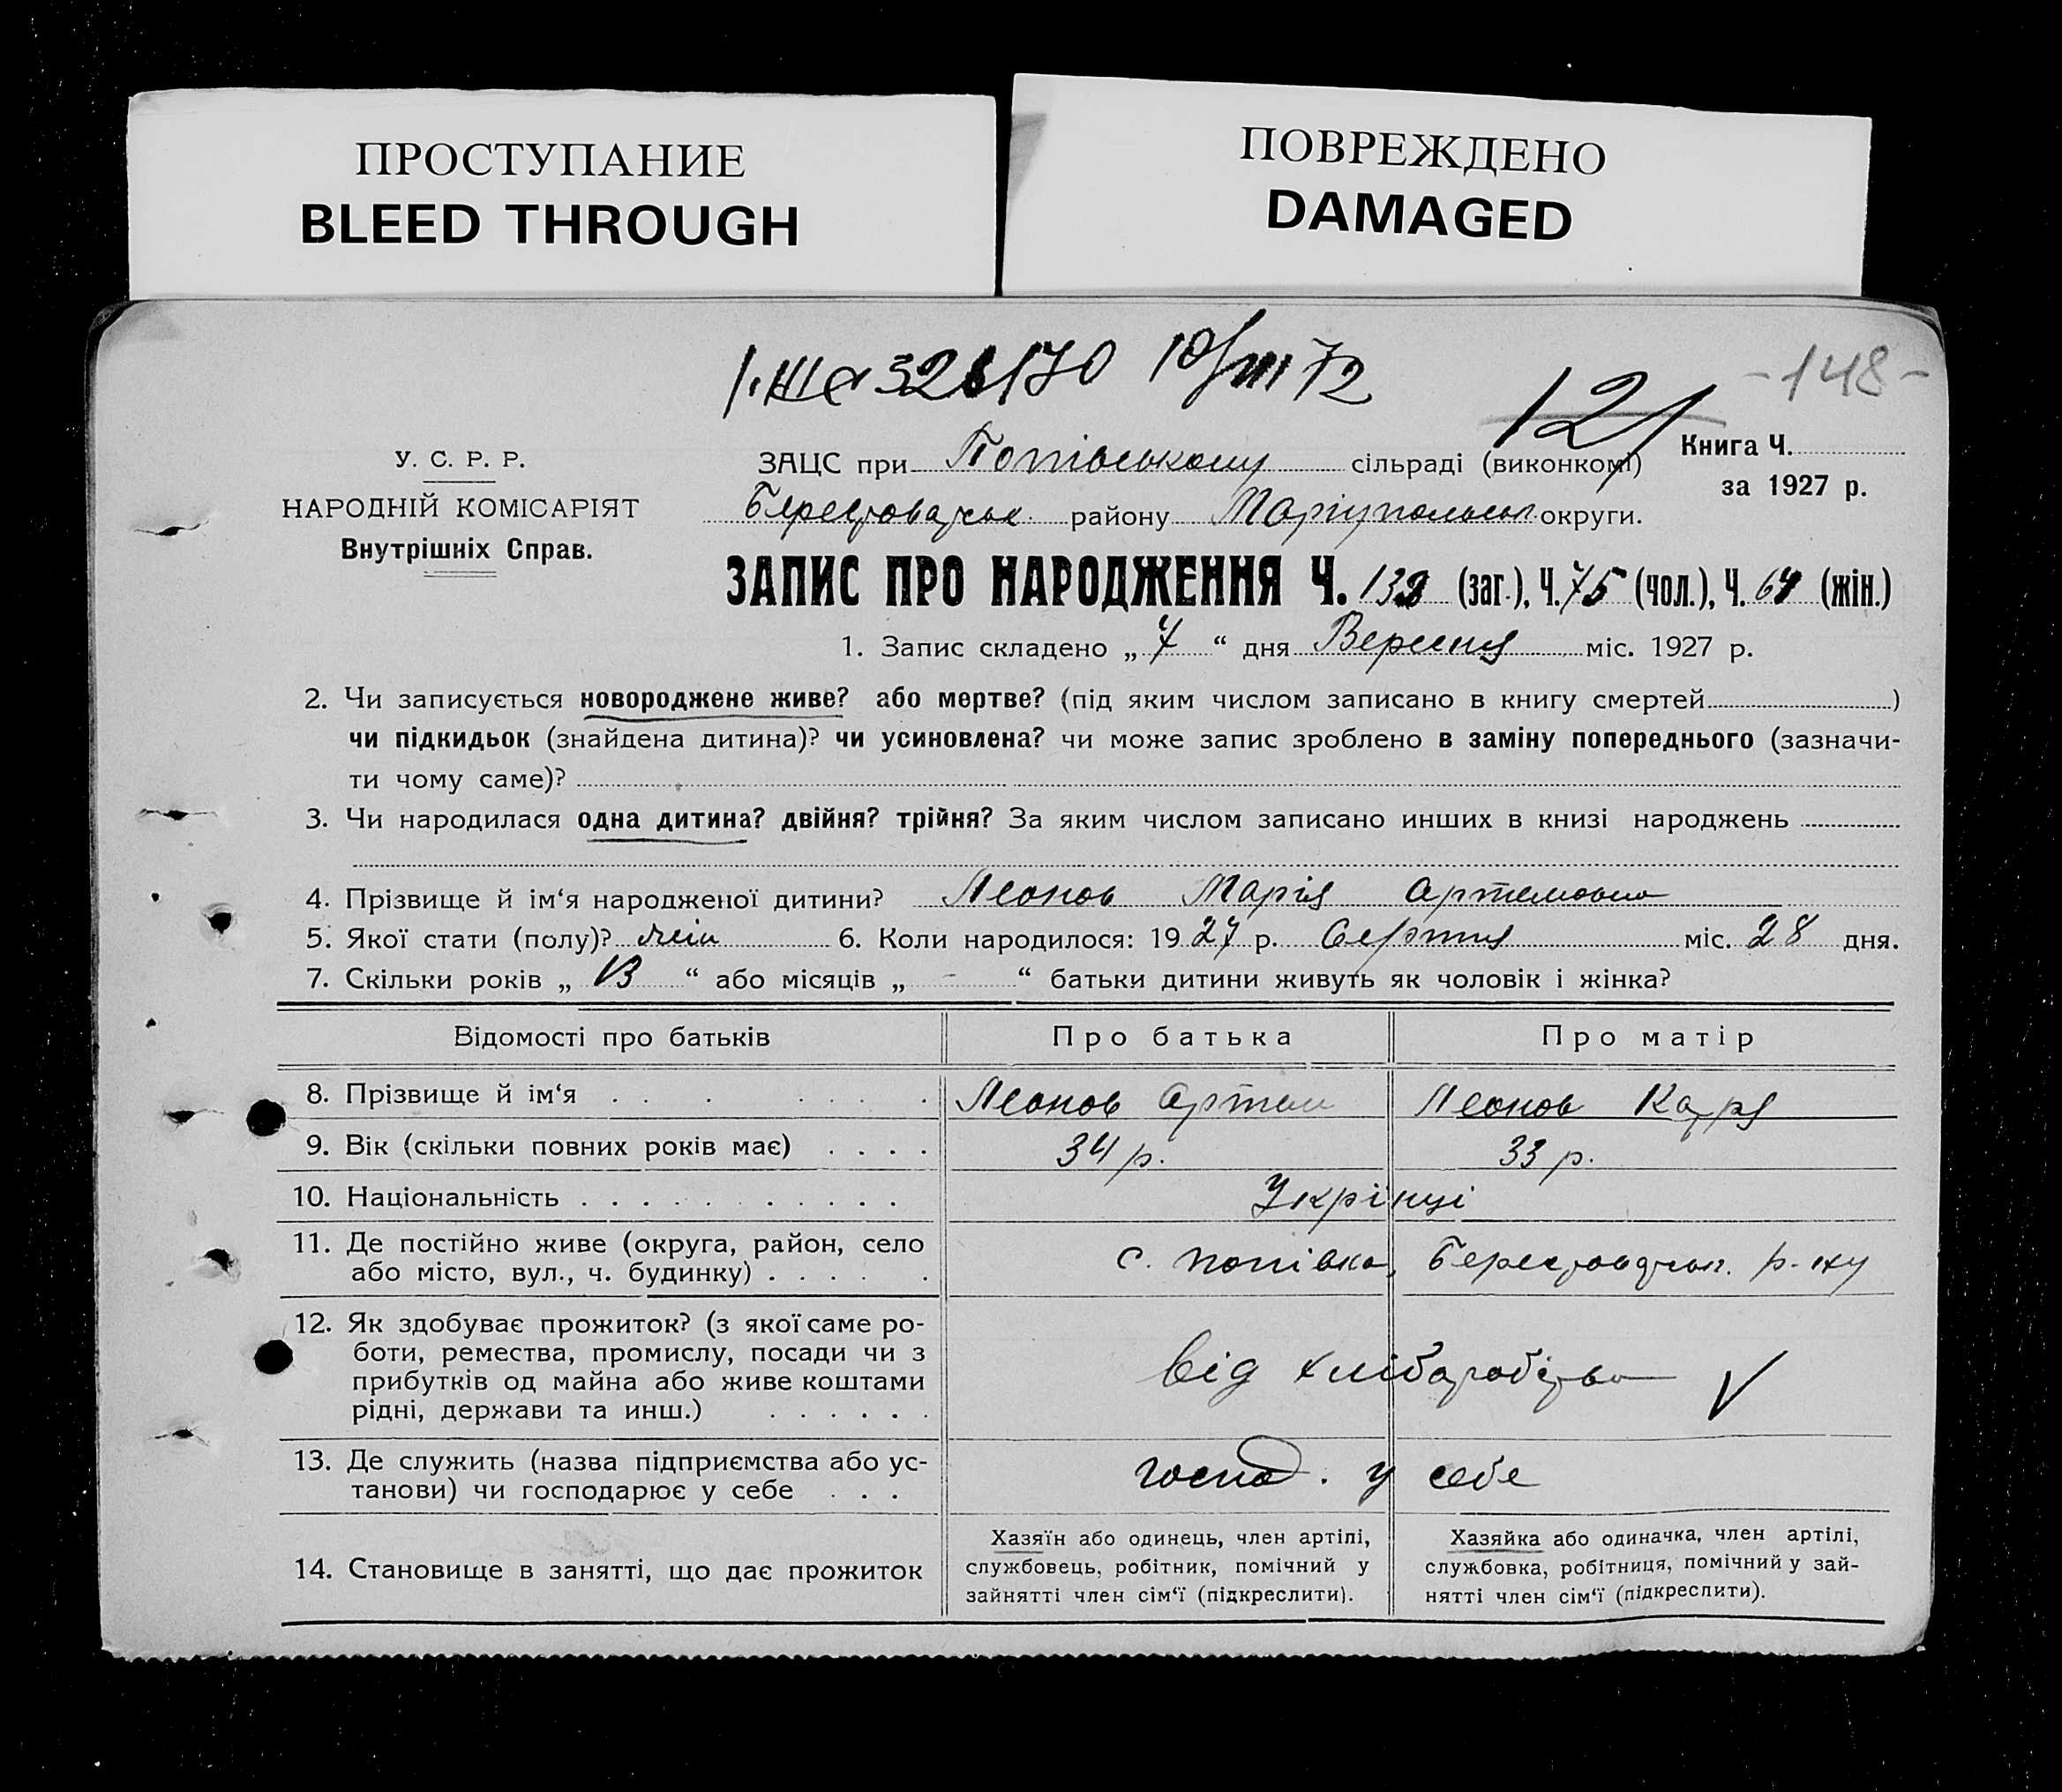 ПРОСТУПАНИЕ
BLEED THROUGH
ПОВРЕЖДЕНО
DAMAGED
10/VIII 72
121
-148-
У. С. Р. Р.
НАРОДНІЙ КОМІСАРІЯТ
Внутрішніх Справ.
ЗАЦС при Попівському сільраді (виконкомі)
Книга Ч.
за 1927 р.
району Маріупольськ округи.
ЗАПИС ПРО НАРОДЖЕННЯ Ч. 139 (заг.), Ч. 75 (чол.), Ч. 64 (жін.)
1. Запис складено „ 7 “ дня Вересня міс. 1927 р.
2. Чи записується новороджене живе? або мертве? (під яким числом записано в книгу смертей )
чи підкидьок (знайдена дитина)? чи усиновлена? чи може запис зроблено в заміну попереднього (зазначи-
ти чому саме)?
3. Чи народилася одна дитина? двійня? трійня? За яким числом записано инших в книзі народжень
4. Прізвище й ім‘я народженої дитини? Леонов Марія Артемовна
5. Якої стати (полу)? жін 6. Коли народилося: 19 27 р. Серпня міс. 28 дня.
7. Скільки років „ 13 “ або місяців „ - “ батьки дитини живуть як чоловік і жінка?
Відомості про батьків
Про батька
Про матір
8. Прізвище й ім‘я
Леонов Артем
Леонов
9. Вік (скільки повних років має)
34 р.
33 р.
10. Національність
Укрінці
11. Де постійно живе (округа, район, село
або місто, вул., ч. будинку)
с. Попівка, р-ну
12. Як здобуває прожиток? (з якої саме ро-
боти, ремества, промислу, посади чи з
прибутків од майна або живе коштами
рідні, держави та инш.)
від
13. Де служить (назва підприємства або ус-
танови) чи господарює у себе
господ. у себе
14. Становище в занятті, що дає прожиток
Хазяїн або одинець, член артілі,
службовець, робітник, помічний у
зайнятті член сім‘ї (підкреслити).
Хазяйка або одиначка, член артілі,
службовка, робітниця, помічний у зай-
нятті член сім‘ї (підкреслити).